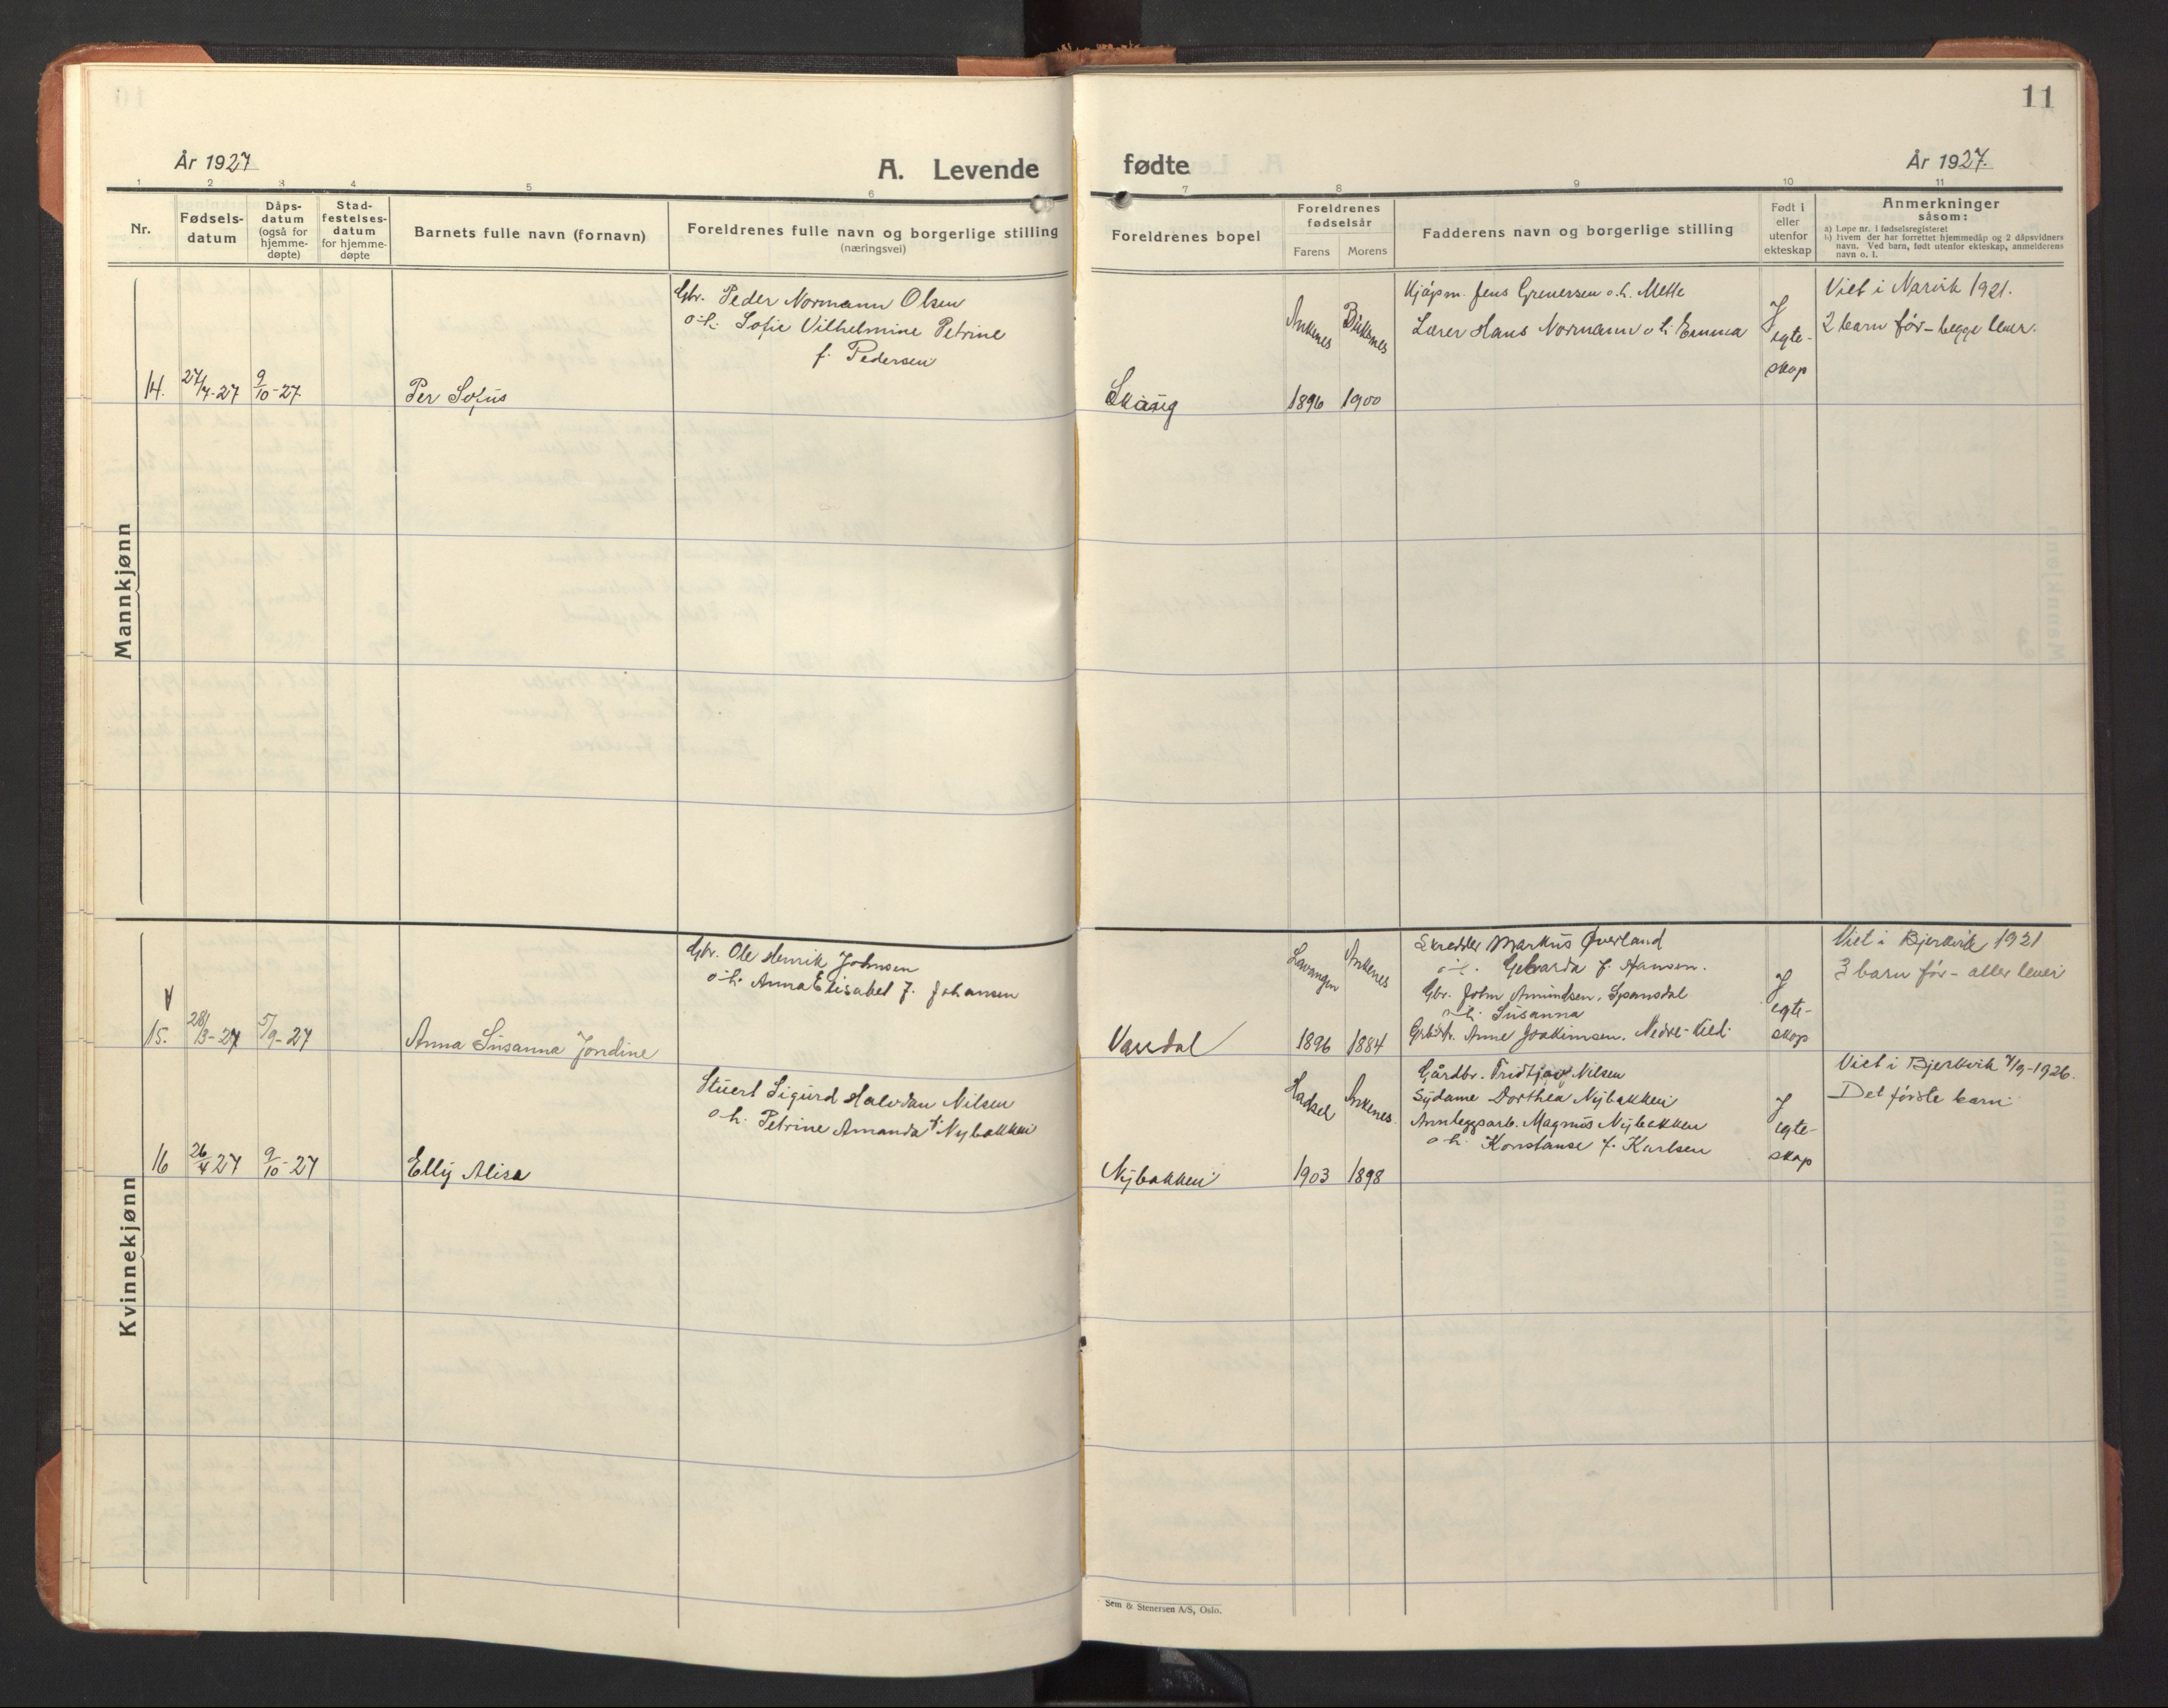 År 1927
A. Levende
1 2 3 4 5 6
Nr.
Fødsels-
datum
Dåps-
datum
(også for
hjemme-
døpte)
Stad-
festelses-
datum
for hjemme-
døpte
Barnets fulle navn (fornavn)
Foreldrenes fulle navn og borgerlige stilling
(næringsvei)
Mannkjønn
Gbr. Peder Normann Olsen
o. h. Sofie Vilhelmine Petrine
f. Pedersen
14. 27/7-27 9/10-27 Per Sofus
Kvinnekjønn
Gbr. Ole Henrik Johnsen
o. h. Anna Elisabet f. Johansen
15. 28/3-27 5/9-27 Anna Susanna Jondine
Stuert Sigurd Halvdan Nilsen
o. h. Petrine Amanda f. Nybakken
16 26/4 27 9/10-27 Elly Alise
11
fødte
År 1927.
7 8 9 10 11
Foreldrenes bopel
Foreldrenes
fødselsår
Farens Morens
Fadderens navn og borgerlige stilling
Født i
eller
utenfor
ekteskap
Anmerkninger
såsom:
a) Løpe nr. i fødselsregisteret
b) Hvem der har forrettet hjemmedåp og 2 dåpsvidners
navn. Ved barn, født utenfor ekteskap, anmelderens
navn o. l.
Kjøpm. Jens Grenersen o. h. Mette
Lærer Hans Normann o. h. Emma
Ankenes
I
egte-
skap
Viet i Narvik 1921.
2 barn før – begge lever.
1896 1900
Skredder Markus Øverland
o. h. f. Hansen.
Gbr. John Amundsen, Spansdal
o. h. Susanna
Anne Joakimsen,
Lavangen Ankenes
I
egte-
skap
Viet i Bjerkvik 1921
3 barn før – alle lever
Vassdal 1896 1884
Gårdbr. Fridtjov Nilsen
Sydame Dorthea Nybakken
Anleggsarb. Magnus Nybakken
o. h. Konstanse f. Karlsen
Hadsel Ankenes
I
egte-
skap
Viet i Bjerkvik 4/9-1926.
Det første barn
Nybakken 1903 1898
Sem & Stenersen A/S, Oslo.